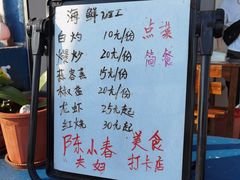 海鲜加工
点菜
白灼 10元/份
爆炒 20元/份
简餐
蒜蓉蒸 15元/份
椒盐 20元/份
龙虾 25元起
红烧 30元起
陈小春 美食
夫妇 打卡店